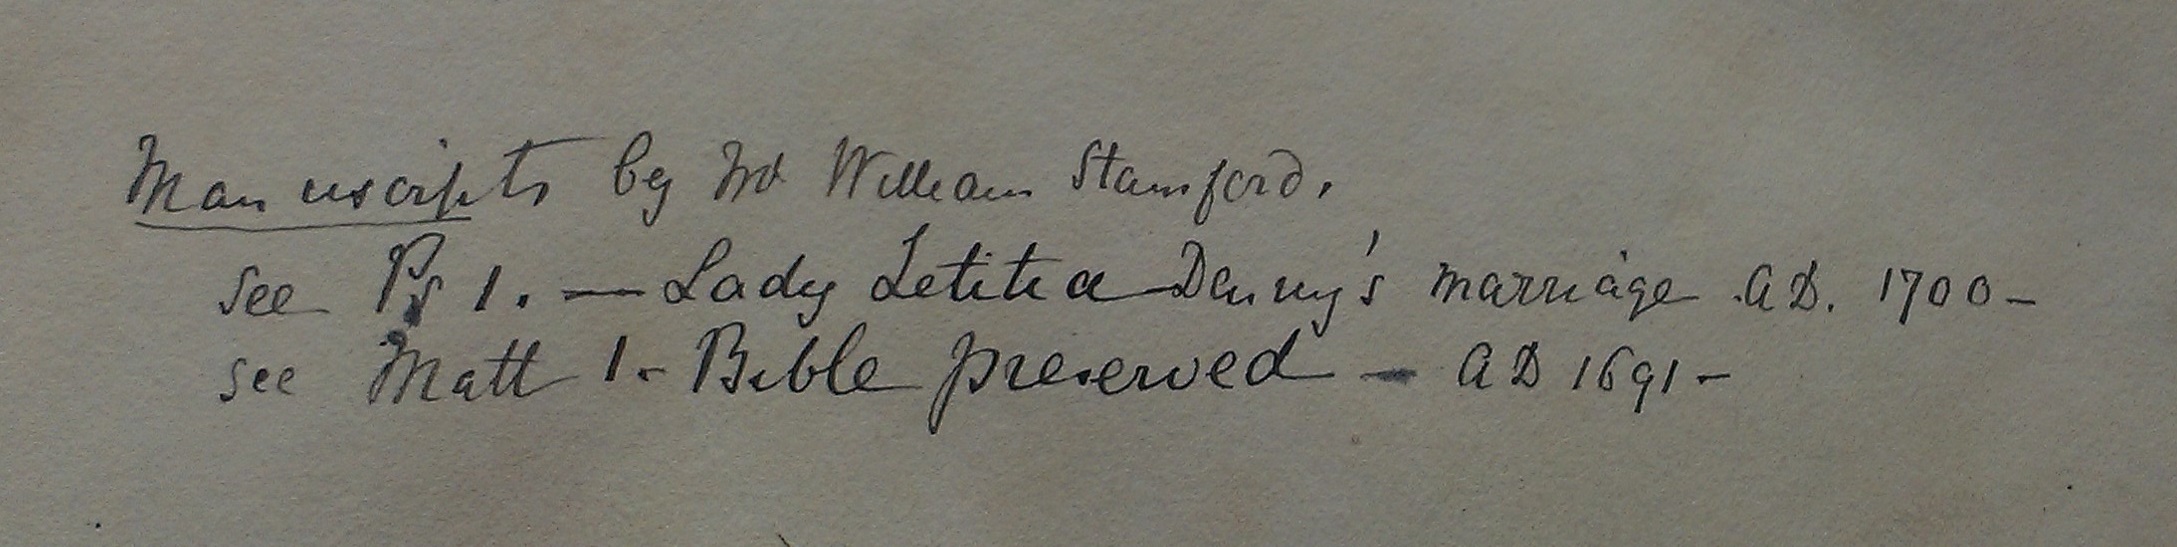 Manuscripts by Mr William Stamford.
See Ps 1. — Lady Letitia Denny's marriage A.D. 1700 -
see Matt 1. - Bible preserved — AD 1691 -